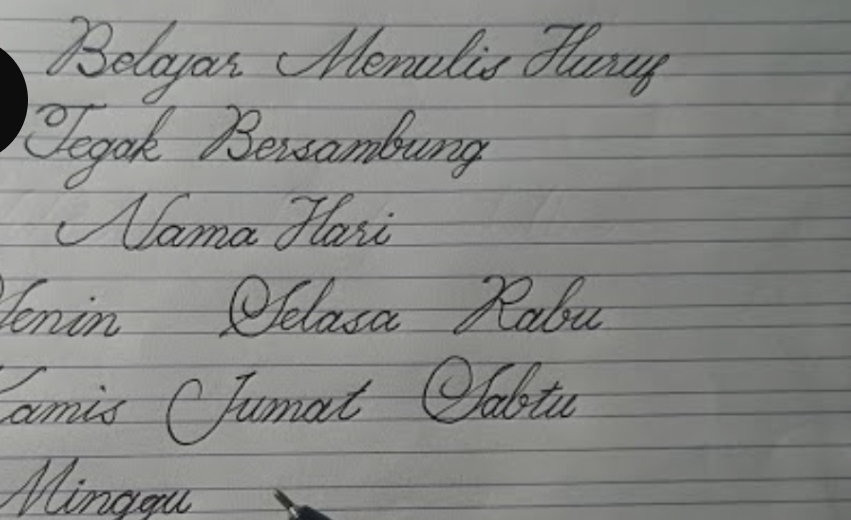 Belajar Menulis Huruf
Tegak Bersambung
Nama Hari
Senin Selasa Rabu
Kamis Jumat Sabtu
Minggu